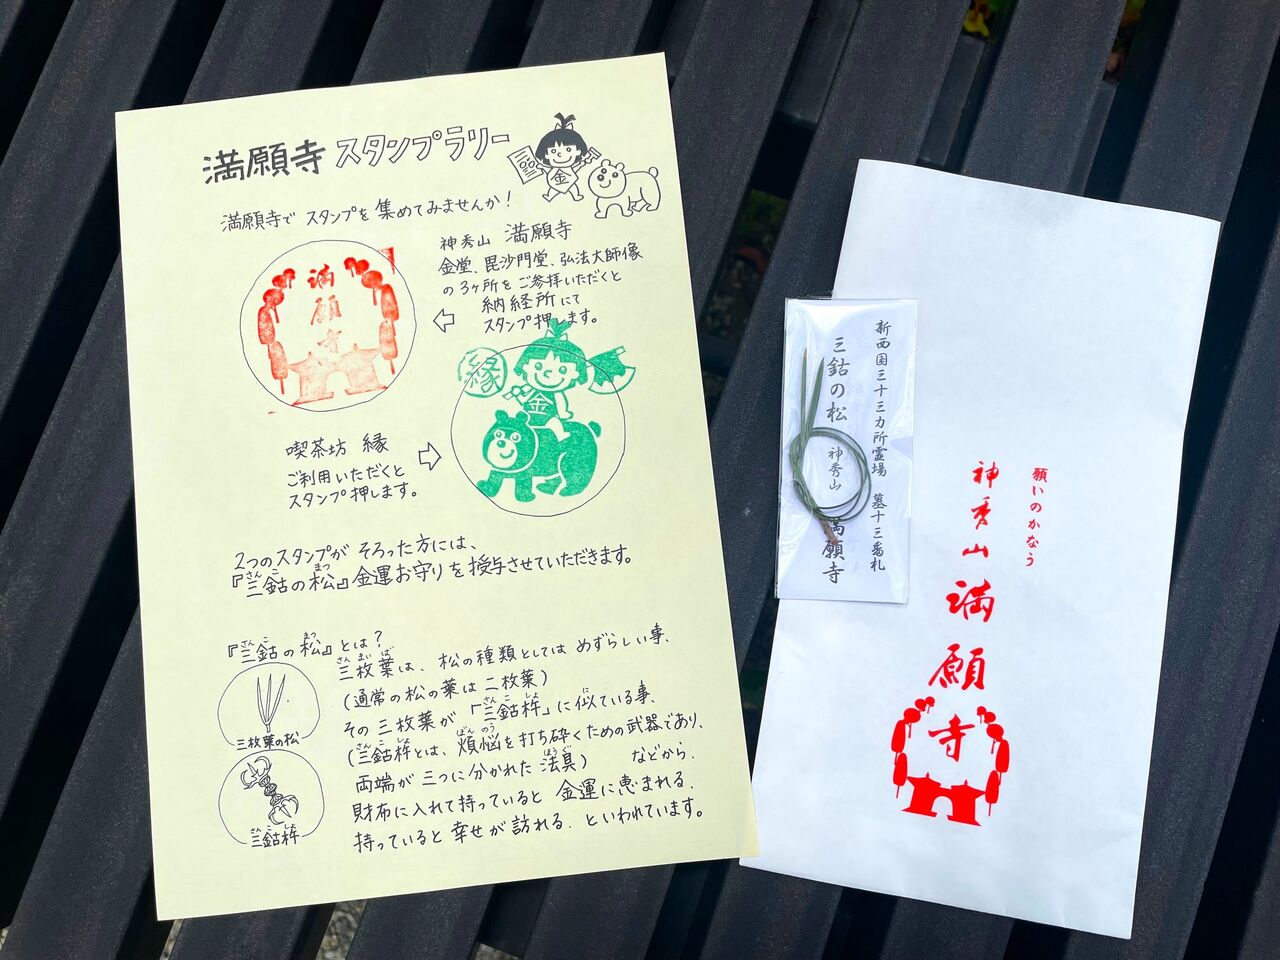 満願寺 スタンプラリー
金
満願寺で スタンプを 集めてみませんか!
満願寺
神秀山 満願寺
金堂、毘沙門堂、弘法大師像
の3ヶ所を ご参拝いただくと
納経所にて
スタンプ押します。
喫茶坊 縁
ご利用いただくと
スタンプ押します。
縁
金
2つのスタンプが そろった方には、
『三鈷の松』金運お守りを 授与させていただきます。
さんこ まつ
『三鈷の松』とは?
さんこ まつ
三枚葉の松
三鈷杵
さんこしょ
三枚葉は、松の種類としては めずらしい事、
さんまいば
(通常の松の葉は 二枚葉)
その 三枚葉が「三鈷杵」に似ている事、
さんこしょ に
(三鈷杵とは、煩悩を打ち砕くための武器であり、
さんこしょ ぼんのう
両端が 三つに分かれた 法具) などから、
ほうぐ
財布に入れて持っていると 金運に恵まれる、
持っていると 幸せが 訪れる、といわれています。
新西国三十三カ所霊場 第十三番札
三鈷の松 神秀山 満願寺
願いのかなう
神秀山 満願寺